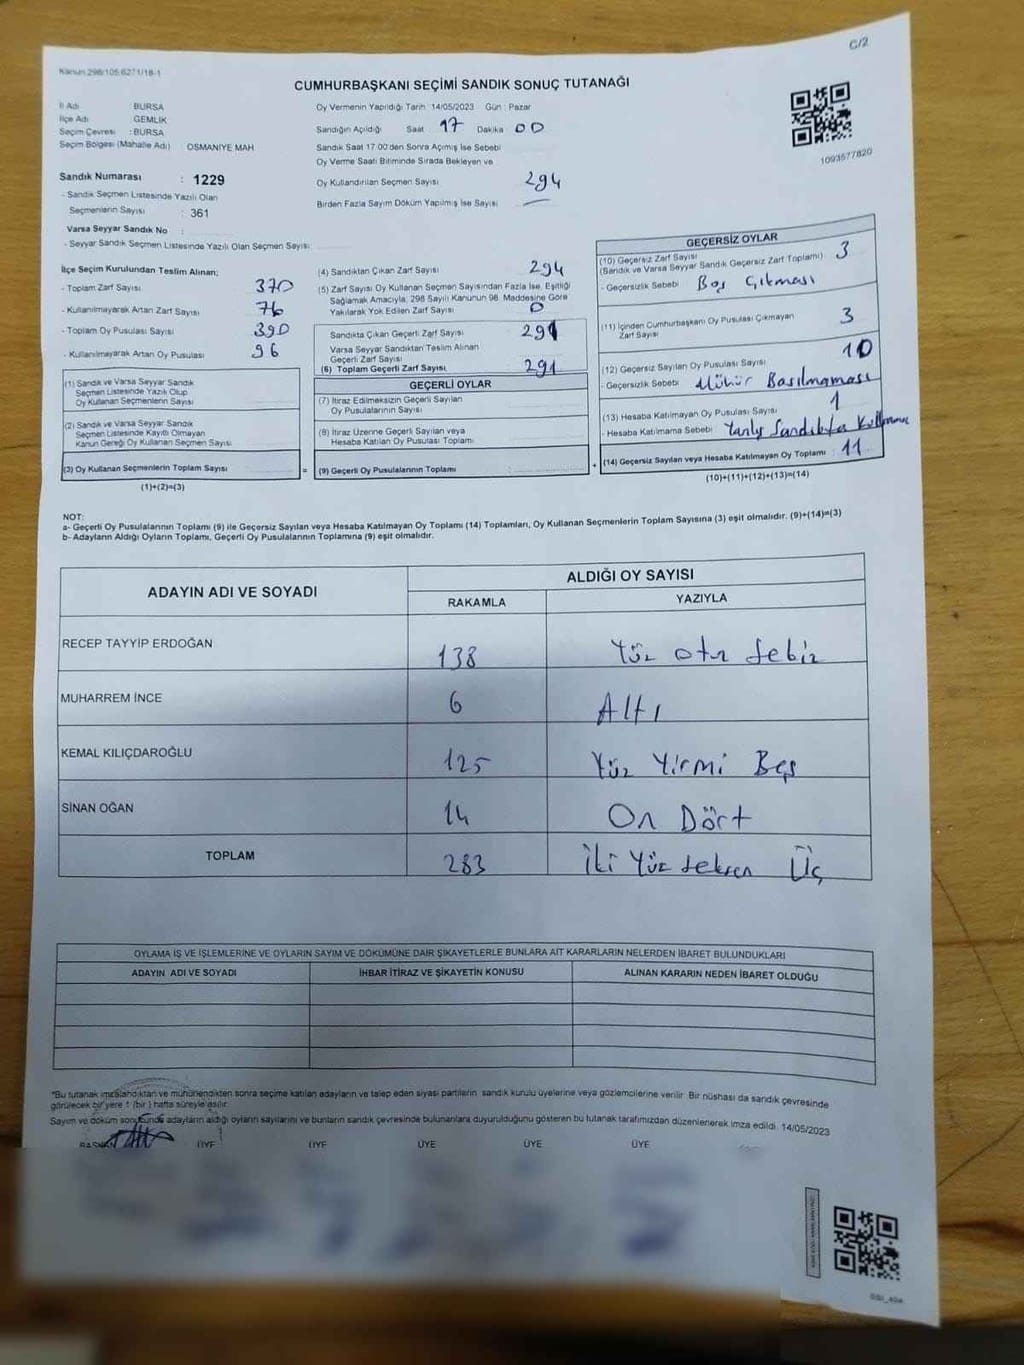 C/2
Kanun 298/105,6271/18-1
CUMHURBAŞKANI SEÇİMİ SANDIK SONUÇ TUTANAĞI
İl Adı BURSA
İlçe Adı GEMLİK
Seçim Çevresi : BURSA
Seçim Bölgesi (Mahalle Adı) OSMANİYE MAH
Sandık Numarası : 1229
- Sandık Seçmen Listesinde Yazılı Olan
Seçmenlerin Sayısı : 361
Varsa Seyyar Sandık No :
- Seyyar Sandık Seçmen Listesinde Yazılı Olan Seçmen Sayısı:
Oy Vermenin Yapıldığı Tarih: 14/05/2023 Gün : Pazar
Sandığın Açıldığı Saat 17 Dakika 00
Sandık Saat 17:00'den Sonra Açımış İse Sebebi
Oy Verme Saati Bitiminde Sırada Bekleyen ve
Oy Kullandırılan Seçmen Sayısı 294
Birden Fazla Sayım Döküm Yapılmış İse Sayısı —
1093577820
İlçe Seçim Kurulundan Teslim Alınan;
- Toplam Zarf Sayısı 370
- Kullanılmayarak Artan Zarf Sayısı 76
- Toplam Oy Pusulası Sayısı 390
- Kullanılmayarak Artan Oy Pusulası 96
(1) Sandık ve Varsa Seyyar Sandık
Seçmen Listesinde Yazılı Olup
Oy Kullanan Seçmenlerin Sayısı :
(2) Sandık ve Varsa Seyyar Sandık
Seçmen Listesinde Kayıtlı Olmayan
Kanun Gereği Oy Kullanan Seçmen Sayısı :
(3) Oy Kullanan Seçmenlerin Toplam Sayısı :
(1)+(2)=(3)
=
(4) Sandıktan Çıkan Zarf Sayısı 294
(5) Zarf Sayısı Oy Kullanan Seçmen Sayısından Fazla İse, Eşitliği
Sağlamak Amacıyla, 298 Sayılı Kanunun 98. Maddesine Göre
Yakılarak Yok Edilen Zarf Sayısı 0
Sandıkta Çıkan Geçerli Zarf Sayısı 291
Varsa Seyyar Sandıktan Teslim Alınan
Geçerli Zarf Sayısı
(6) Toplam Geçerli Zarf Sayısı 291
GEÇERLİ OYLAR
(7) İtiraz Edilmeksizin Geçerli Sayılan
Oy Pusulalarının Sayısı
(8) İtiraz Üzerine Geçerli Sayılan veya
Hesaba Katılan Oy Pusulası Toplamı
(9) Geçerli Oy Pusulalarının Toplamı :
+
GEÇERSİZ OYLAR
(10) Geçersiz Zarf Sayısı 3
(Sandık ve Varsa Seyyar Sandık Geçersiz Zarf Toplamı)
- Geçersizlik Sebebi Boş Çıkması
(11) İçinden Cumhurbaşkanı Oy Pusulası Çıkmayan 3
Zarf Sayısı
(12) Geçersiz Sayılan Oy Pusulası Sayısı 10
- Geçersizlik Sebebi Mühür Basılmaması
(13) Hesaba Katılmayan Oy Pusulası Sayısı 1
- Hesaba Katılmama Sebebi Yanlış Sandıkta
(14) Geçersiz Sayılan veya Hesaba Katılmayan Oy Toplamı : 11
(10)+(11)+(12)+(13)=(14)
NOT:
a- Geçerli Oy Pusulalarının Toplamı (9) ile Geçersiz Sayılan veya Hesaba Katılmayan Oy Toplamı (14) Toplamları, Oy Kullanan Seçmenlerin Toplam Sayısına (3) eşit olmalıdır. (9)+(14)=(3)
b- Adayların Aldığı Oyların Toplamı, Geçerli Oy Pusulalarının Toplamına (9) eşit olmalıdır.
ADAYIN ADI VE SOYADI
ALDIĞI OY SAYISI
RAKAMLA YAZIYLA
RECEP TAYYİP ERDOĞAN 138 Yüz otuz Sekiz
MUHARREM İNCE 6 Altı
KEMAL KILIÇDAROĞLU 125 Yüz Yirmi Beş
SİNAN OĞAN 14 On Dört
TOPLAM 283 İki Yüz seksen Üç
OYLAMA İŞ VE İŞLEMLERİNE VE OYLARIN SAYIM VE DÖKÜMÜNE DAİR ŞİKAYETLERLE BUNLARA AİT KARARLARIN NELERDEN İBARET BULUNDUKLARI
ADAYIN ADI VE SOYADI İHBAR İTİRAZ VE ŞİKAYETİN KONUSU ALINAN KARARIN NEDEN İBARET OLDUĞU
"Bu tutanak imzalandıktan ve mühürlendikten sonra seçime katılan adayların ve talep eden siyasi partilerin sandık kurulu üyelerine veya gözlemcilerine verilir. Bir nüshası da sandık çevresinde
görülecek bir yere 1 (bir) hafta süreyle asılır.
Sayım ve döküm sonucunda adayların aldığı oyların sayılarını ve bunların sandık çevresinde bulunanlara duyurulduğunu gösteren bu tutanak tarafımızdan düzenlenerek imza edildi. 14/05/2023
BAŞKAN ÜYE ÜYE ÜYE ÜYE ÜYE